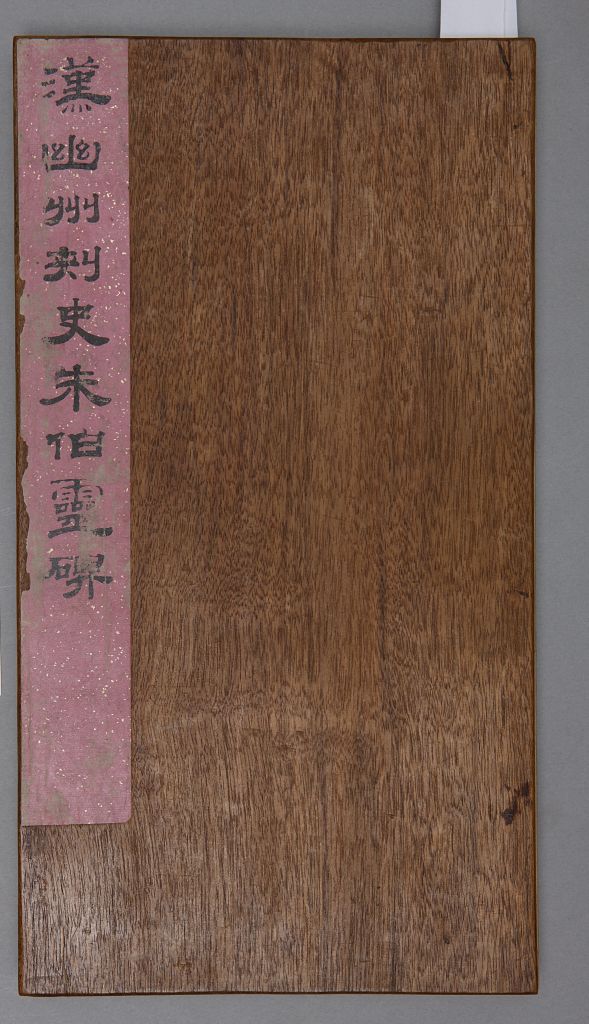 漢幽州刺史朱伯靈碑